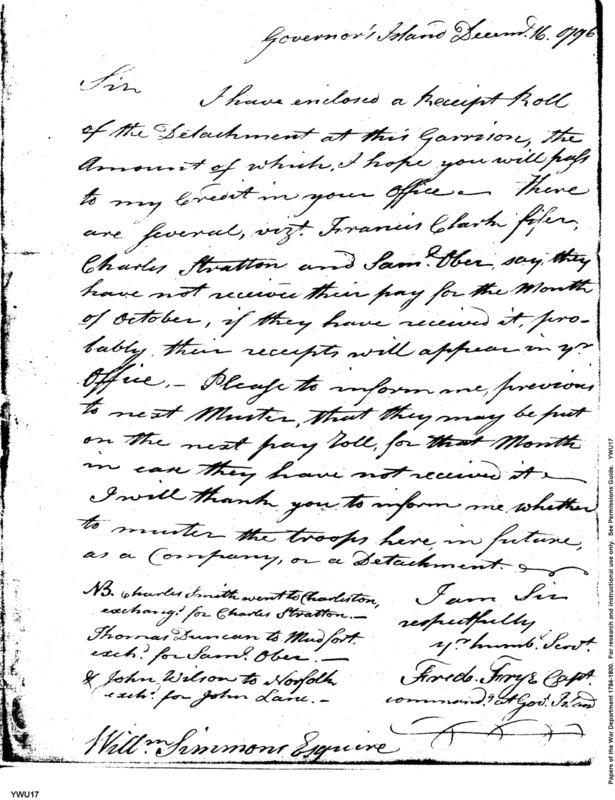 Governor's Island Decemb. 16. 1796
Sir
I have enclosed a Receipt Roll
of the Detachment at this Garrison, the
Amount of which, I hope you will pass
to my Credit in your Office — There
are several, vizt. Francis Clark fifer,
Charles Stratton and Saml. Ober, say they
have not received their pay for the Month
of October, if they have received it, pro-
bably their receipts will appear in yr
Office. — Please to inform me, previous
to next Muster, that they may be put
on the next pay Roll, for that Month
in case they have not received it —
I will thank you to inform me whether
to muster the troops here in future,
as a Company, or a Detachment.
NB. Charles Smith went to Charleston,
exchangd. for Charles Stratton. —
Thomas Duncan to Mudfort.
exchd. for Saml. Ober. —
& John Wilson to Norfolk
exchd. for John Lane. —
I am Sir
respectfully
yr. humbl. Servt.
Fredk. Frye Capt.
commandg. at Gov. Island
Willm Simmons Esquire
YWU17
Papers of the War Department 1784-1800. For research and instructional use only. See Permissions Guide. YWU17